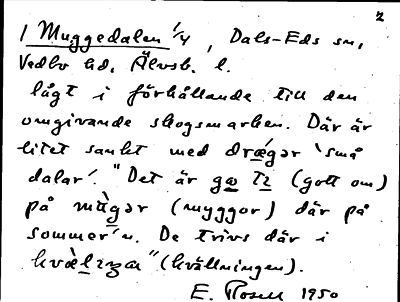 2
1 Muggedalen 1/4, Dals-Eds sn,
Vedbo hd, Älvsb. l.
lågt i förhållande till den
omgivande skogsmarken. Där är
litet sankt med drægər 'små
dalar'. "Det är gɷ tɪ (gott om)
på mùgər (myggor) där på
sommer'n. De trivs där i
(kvällningen).
E. Rosell 1950